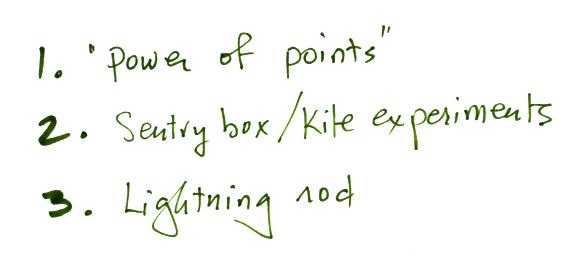 1. "Power of points"
2. Sentry box/Kite experiments
3. Lightning rod